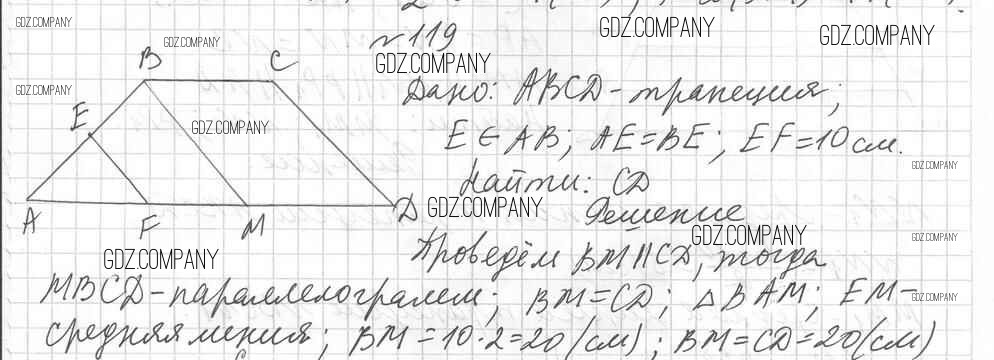 GDZ.COMPANY
№119
GDZ.COMPANY
GDZ.COMPANY
GDZ.COMPANY
B C
GDZ.COMPANY
GDZ.COMPANY
Дано: ABCD - трапеция;
E
GDZ.COMPANY
E ∈ AB; AE = BE; EF = 10 см.
GDZ.COMPANY
Найти: CD
A F M D
GDZ.COMPANY
Решение
GDZ.COMPANY
GDZ.COMPANY
GDZ.COMPANY
Проведём BM || CD, тогда
MBCD - параллелограмм; BM = CD; △ BAM; EM -
GDZ.COMPANY
средняя линия; BM = 10·2 = 20 (см); BM = CD = 20 (см)